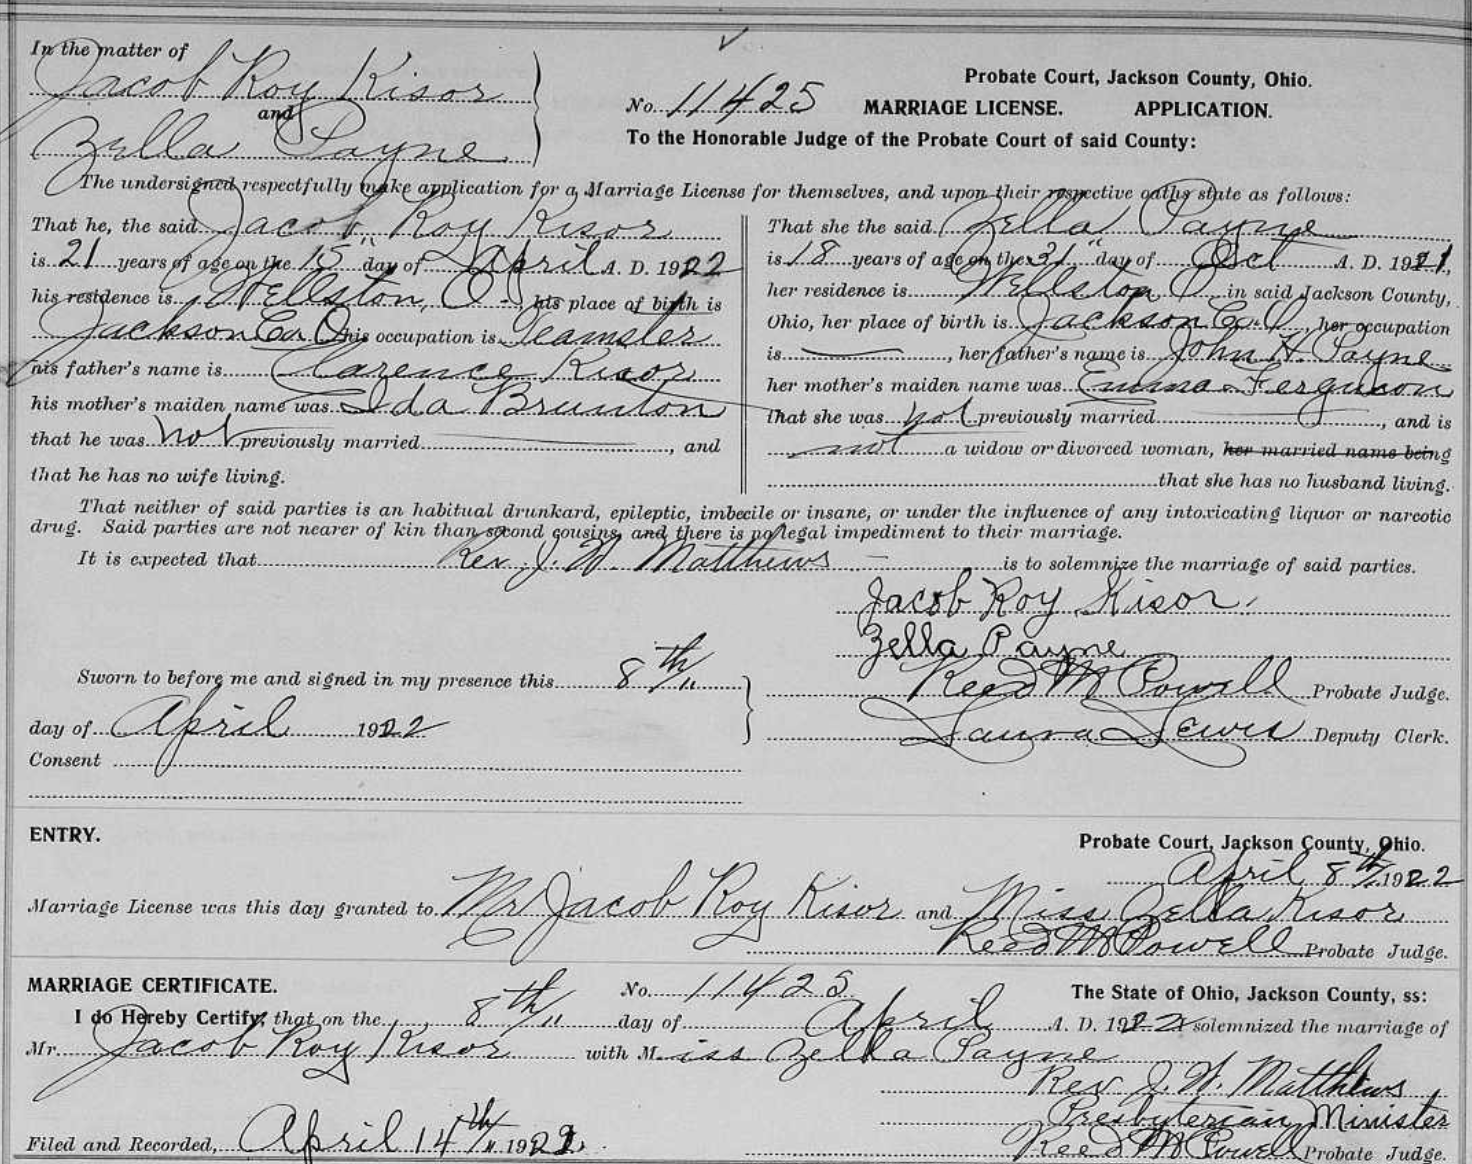 In the matter of
Jacob Roy Kisor
and
Zella Payne
No. 11425
Probate Court, Jackson County, Ohio.
MARRIAGE LICENSE. APPLICATION.
To the Honorable Judge of the Probate Court of said County:
The undersigned respectfully make application for a Marriage License for themselves, and upon their respective oaths state as follows:
That he, the said Jacob Roy Kisor
is 21 years of age on the 15" day of April A. D. 1922
his residence is Wellston, O., his place of birth is
Jackson Co. O his occupation is Teamster
his father's name is Clarence Kisor
his mother's maiden name was Ida Brunton
that he was not previously married, and
that he has no wife living.
That she the said Zella Payne
is 18 years of age on the 31" day of Oct A. D. 1921,
her residence is Wellston, O. in said Jackson County,
Ohio, her place of birth is Jackson Co. O, her occupation
is —, her father's name is John H. Payne
her mother's maiden name was Emma Ferguson
that she was not previously married, and is
not a widow or divorced woman, her married name being
that she has no husband living.
That neither of said parties is an habitual drunkard, epileptic, imbecile or insane, or under the influence of any intoxicating liquor or narcotic
drug. Said parties are not nearer of kin than second cousins, and there is no legal impediment to their marriage.
It is expected that Rev. J. W. Matthews is to solemnize the marriage of said parties.
Jacob Roy Kisor.
Zella Payne
Sworn to before me and signed in my presence this 8th
day of April 1922
Consent
Reed M Powell Probate Judge.
Laura Lewis Deputy Clerk.
ENTRY.
Probate Court, Jackson County, Ohio.
April 8th 1922
Marriage License was this day granted to Mr Jacob Roy Kisor and Miss Zella Kisor
Reed M Powell Probate Judge.
MARRIAGE CERTIFICATE.
No. 11425
The State of Ohio, Jackson County, ss:
I do Hereby Certify, that on the 8th day of April A. D. 1922 I solemnized the marriage of
Mr. Jacob Roy Kisor with Miss Zella Payne
Rev. J. W. Matthews
Presbyterian Minister
Filed and Recorded, April 14th 1922.
Reed M Powell Probate Judge.